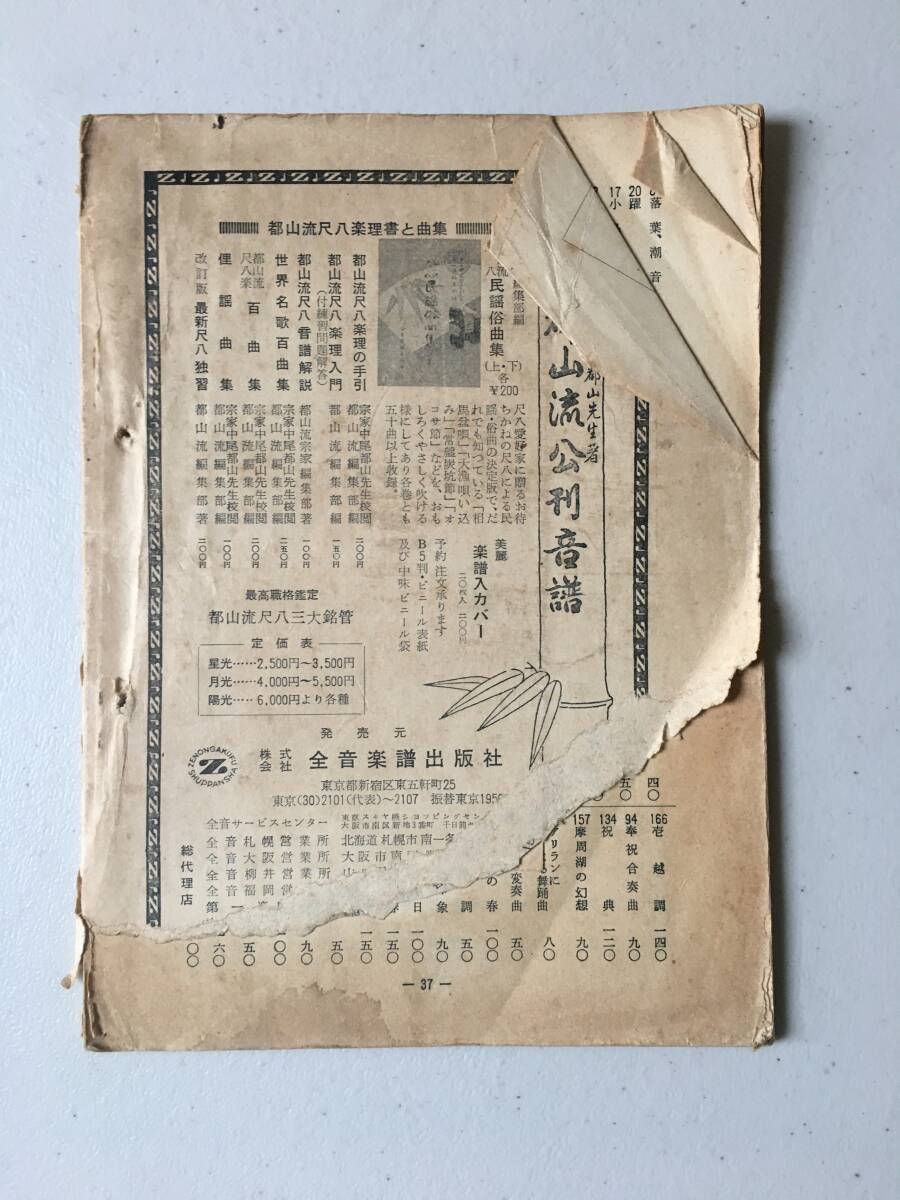 落葉、潮音
20躍
17小
都山先生著
山流公刊音譜
都山流尺八楽理書と曲集
編集部編
民謡俗曲集
(上・下)
各
¥200
尺八愛好家に贈るお待
ちかねの尺八による民
謡・俗曲の決定版で、だ
れでも知っている「相
馬盆唄」「大漁唄い込
み」「常盤炭坑節」「オ
コサ節」などを、おも
しろくやさしく吹ける
様にしてあり各巻とも
五十曲以上収録。
都山流尺八楽理の手引 宗家中尾都山先生校閲 都山流編集部編 二〇〇円
都山流尺八楽理入門 (付練習問題解答) 都山流編集部編 一五〇円
都山流尺八音譜解説 都山流宗家編集部著 一〇〇円
世界名歌百曲集 宗家中尾都山先生校閲 都山流編集部編 二五〇円
都山流尺八楽 百曲集 宗家中尾都山先生校閲 都山流編集部編 二〇〇円
俚謡曲集 宗家中尾都山先生校閲 都山流編集部編 一〇〇円
改訂版 最新尺八独習 都山流編集部著 二〇〇円
美麗
楽譜入カバー
二〇枚入 二〇〇円
予約注文承ります
B5判・ビニール表紙
及び中味ビニール袋
最高職格鑑定
都山流尺八三大銘管
定価表
星光……2,500円〜3,500円
月光……4,000円〜5,500円
陽光‥‥6,000円より各種
発売元
株式会社 全音楽譜出版社
ZENONGAKUFU SHUPPANSHA
東京都新宿区東五軒町25
東京(30)2101(代表)〜2107 振替東京1950
全音サービスセンター
東京スキヤ橋ショッピングセン
大阪市南区新地3番町 千日前
総代理店
全音札幌営業所 北海道札幌市南一条
全音大阪営業所 大阪市南
全音柳井営業所 山
全音福岡営
第一
四〇
五〇
166壱越調 一四〇
94奉祝合奏曲 九〇
134祝典 一二〇
157摩周湖の幻想 九〇
リランに
舞踊曲 八〇
変奏曲 五〇
の春 一〇〇
調 五〇
象 九〇
日 一〇〇
一五〇
一五〇
五〇
九〇
一〇〇
五〇
六〇
〇〇
— 37 —